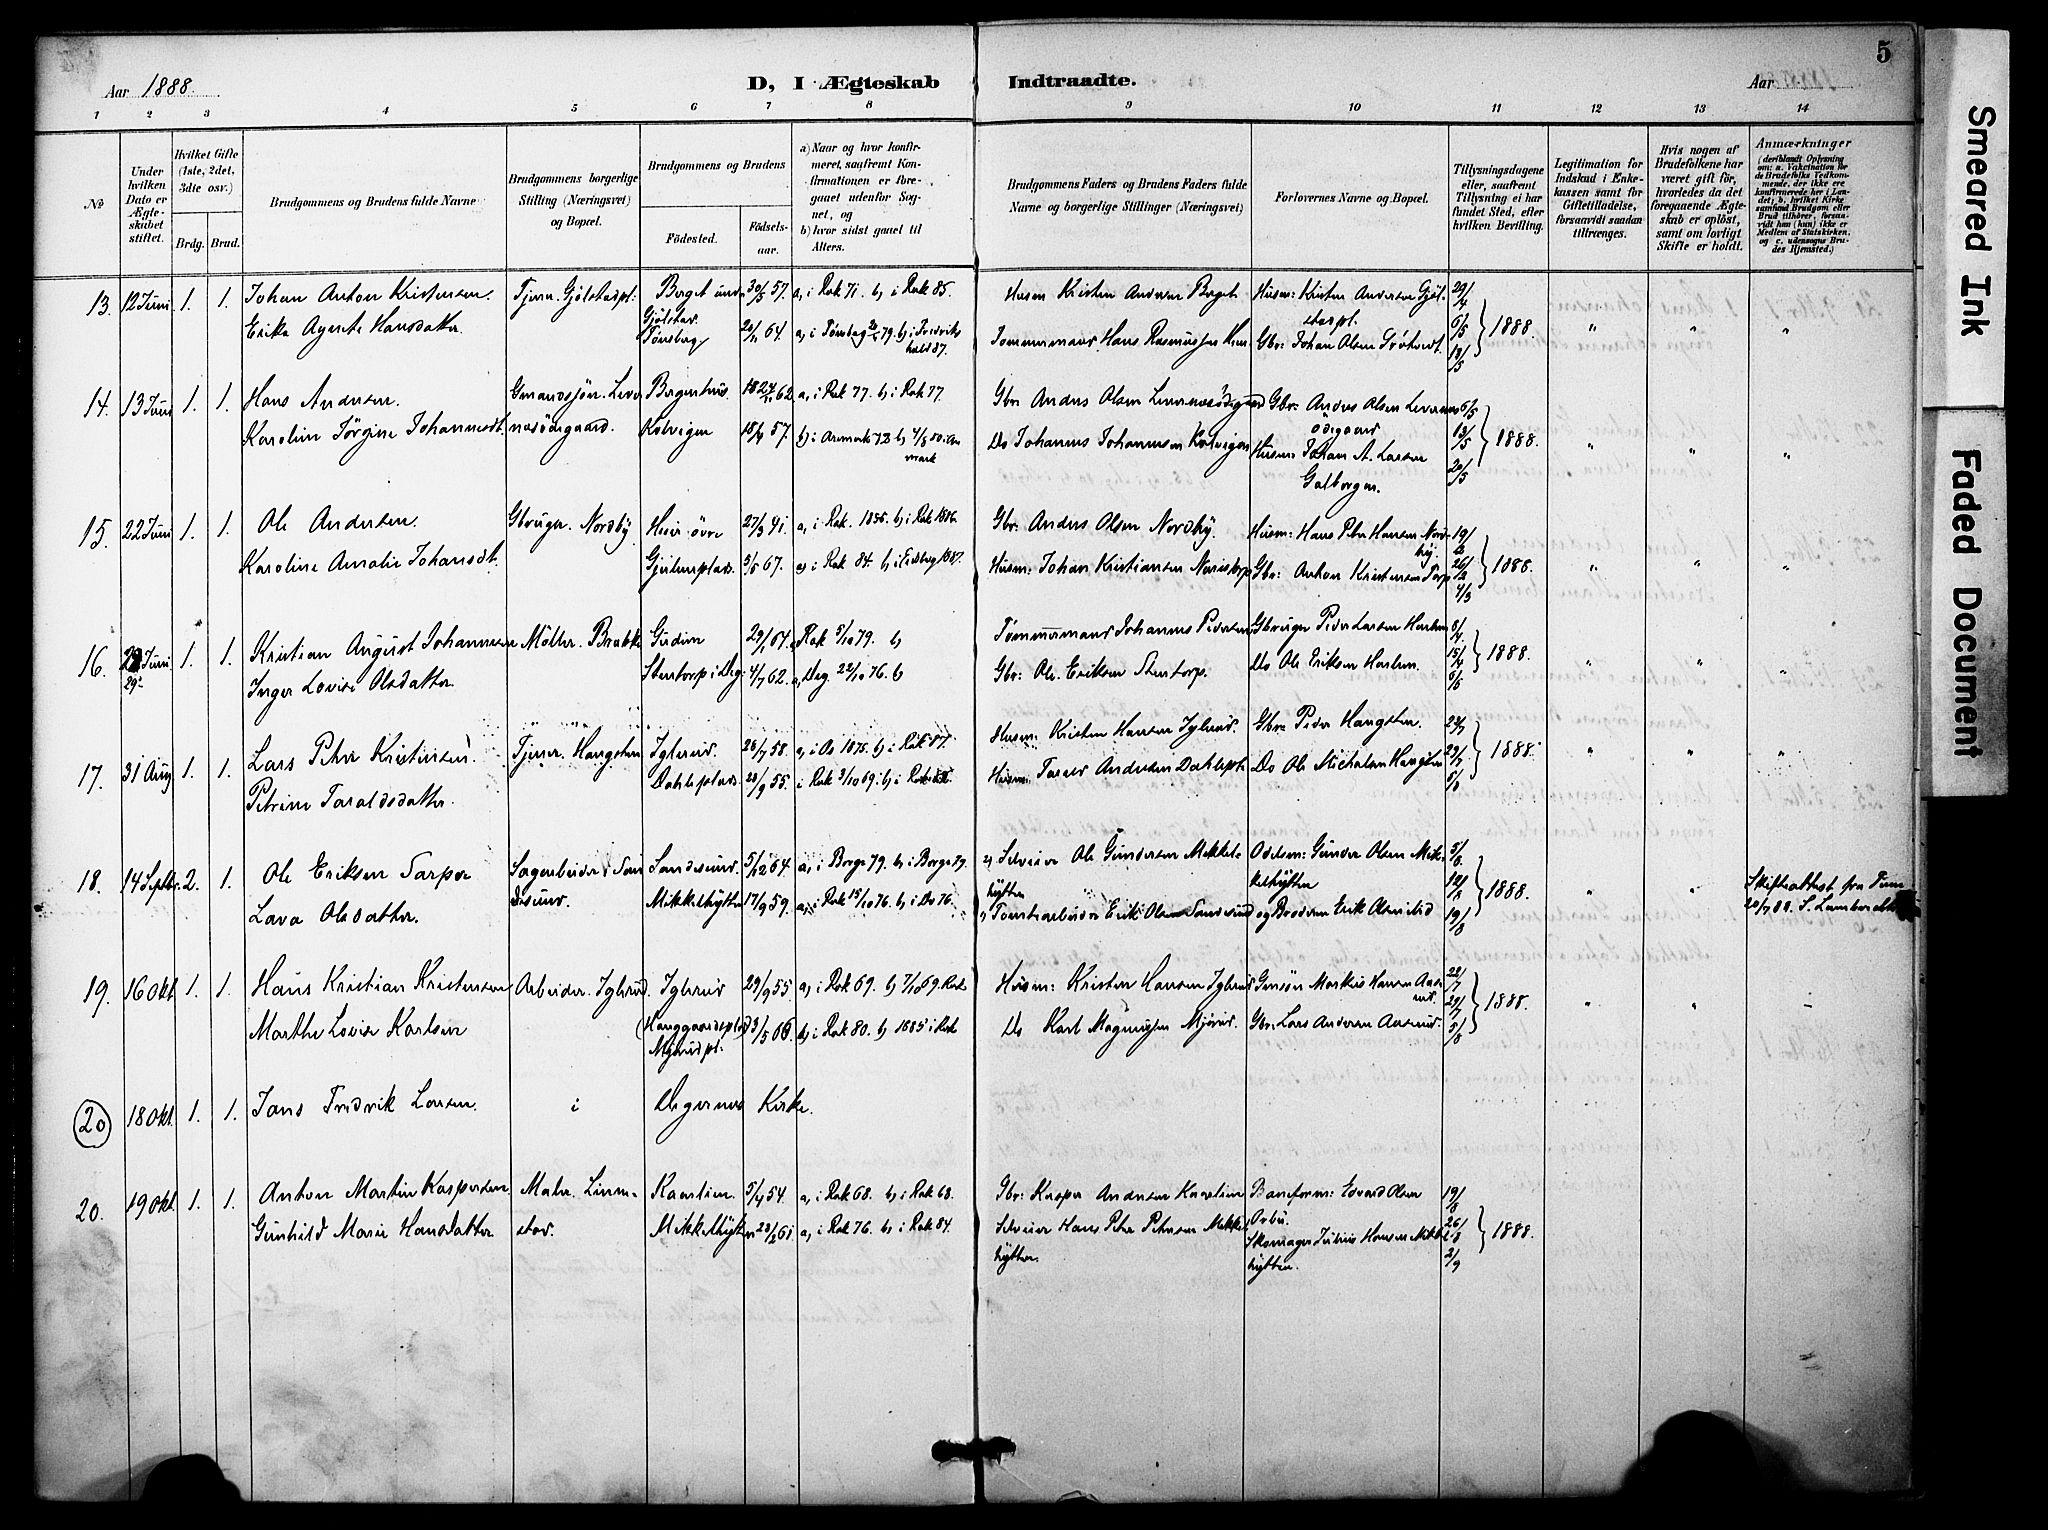 5
Aar 1888.
D, I Ægteskab Indtraadte.
Aar
1 2 3 4 5 6 7 8 9 10 11 12 13 14
No
Under hvilken Dato er Ægteskabet stiftet.
Hvilket Gifte (1ste, 2det, 3die osv.)
Brdg. Brud.
Brudgommens og Brudens fulde Navne
Brudgommens borgerlige Stilling (Næringsvei) og Bopæl.
Brudgommens og Brudens
Fødested.
Fødselsaar.
a) Naar og hvor konfirmeret, saafremt Konfirmationen er foregaaet udenfor Sognet, og
b) hvor sidst gaaet til Alters.
Brudgommens Faders og Brudens Faders fulde Navne og borgerlige Stillinger (Næringsvei)
Forlovernes Navne og Bopæl.
Tillysningsdagene eller, saafremt Tillysning ei har fundet Sted, efter hvilken Bevilling.
Legitimation for Indskud i Enkekassen samt for Giftetilladelse, forsaavidt saadan tiltrænges.
Hvis nogen af Brudefolkene har været gift før, hvorledes da det foregaaende Ægteskab er opløst, samt om lovligt Skifte er holdt.
Anmærkninger
(deriblandt Oplysning om: a. Vaccination for de Brudefolks Vedkommende, der ikke ere konfirmerede her i Landet; b. hvilket Kirkesamfund Brudgom eller Brud tilhører, forsaavidt han (hun) ikke er Medlem af Statskirken, og c. udensogns Brudes Hjemsted.)
13. 12 Juni 1. 1. Johan Anton Kristensen. Tjener. Gjölstadpl. Berget under Gjölstad. 30/5 57. a, i Rak 71. b, i Rak 85. Husm Kristen Andersen Berget Husm: Kristen Andersen Gjölstadpl. 29/4 6/5 13/5 1888. " " "
Erika Agente Hansdatter Tönsberg 20/11 64. a, i Tönsberg 79. b, i Fredrikshald 87. Tømmermand Hans Rasmussen Gbr: Johan Olsen
14. 13 Juni 1. 1. Hans Andersen. Bergerhus. 62. a, i Rak 77. b, i Rak 77. Gbr Anders Olsen Gbr: Anders Olsen ödegaard 6/5 13/5 20/5 1888. " " "
Karoline Jörgine Johannesdt. Kolvigen 57. b, i Aremark 72 b, 80. i Aremark Do Johannes Johannesen Kolvigen Husm: Johan A. Larsen
15. 22 Juni 1. 1. Ole Andersen. Gbruger. Nordby övre 27/3 41. a, i Rak. 1856. b, i Rak 1886. Gbr: Anders Olsen Nordby. Husm: Hans Peter Hansen Nordby. 19/2 26/2 4/3 1888. " " "
Karoline Amalie Johansdt. 67. a, i Rak 84. b, i Eidsberg 1887. Husm: Johan Kristiansen Gbr: Anton Kristensen Torp
16. 29 Juni 1. 1. Kristian August Johannesen Möller. Brakke Gudim 29/1 64. Rak 5/10 79. b, Tømmermand Johannes Pedersen Gbruger Peder Larsen Harlem 8/4 15/4 6/5 1888. " " "
Inger Lovise Olsdatter Stentorp i Deg. 4/7 62. a, Deg 22/10 76. b, Gbr: Ole Eriksen Stentorp. Do Ole Eriksen Harlem.
17. 31 Aug 1. 1. Lars Peter Kristensen. Tjener. Hangsten Iglerud. 26/7 58. a, i Os 1875. b, i Rak 87. Husm: Kristen Hansen Iglerud. Gbr: Peder Hangsten. 29/7 5/8 1888. " " "
Petrine Taraldsdatter. Dahleplads 20/9 55. i Rak 3/10 69. b, i Husm: Andersen Dahlepl. Do Ole Michalsen Hangsten
18. 14 Septbr. 2. 1. Ole Eriksen Sarpen Sagarbeider Sandesund. Sandesund. 5/12 64. a, i Borge 79. b, i Borge 79. Selveier Ole Gundersen Mikkelshytten Odelsm: Gunder Olsen Mikkelshytten 5/8 12/8 19/8 1888. " " Skifteattest fra Tune 20/7 88.
Lava Olsdatter Mikkelshytten 17/9 59. a, i Rak 15/10 76. b, i Do 76. Tomtearbeider Erik Olsen Sandesund og Broderen Erik Olsen
19. 16 Okt 1. 1. Hans Kristian Kristensen Arbeider. Iglerud. Iglerud 29/9 55 a, i Rak 69. b, 7/10 69. Rak Husm: Kristen Hansen Iglerud Markus Hansen Aaserud. 22/7 29/7 5/8 1888. " " –
Marthe Lovise Karlsen (Hanggaardspl.) Mjørudpl. 3/5 66 a, i Rak 80. b, 1885 i Rak Do Karl Magnussen Mjørud. Gbr: Lars Andersen Aaserud.
20 18 Okt. 1. 1. Jans Fredrik Larsen. i Degernes Kirke.
20. 19 Okt 1. 1. Anton Martin Kaspersen Maler. Kaarlien. 5/4 54. a, i Rak 68. b, i Rak 68. Gbr: Kasper Andersen Kaarlien Baneform: Edvard Olsen Ørbu. 19/8 26/8 2/9 1888.
Gunhild Marie Hansdatter Mikkelshytten a, i Rak 76. b, i Rak 84. Selveier Hans Peter Petersen Mikkelshytten. Skomager Julius Hansen Mikkelshytten.
Smeared Ink
Faded Document